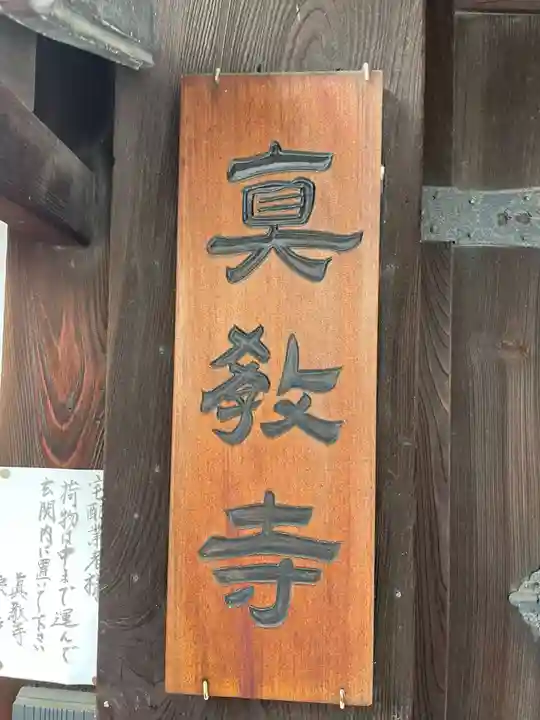 眞教寺
宅配業者様
荷物は中まで運んで
玄関内に置いて下さい
眞教寺